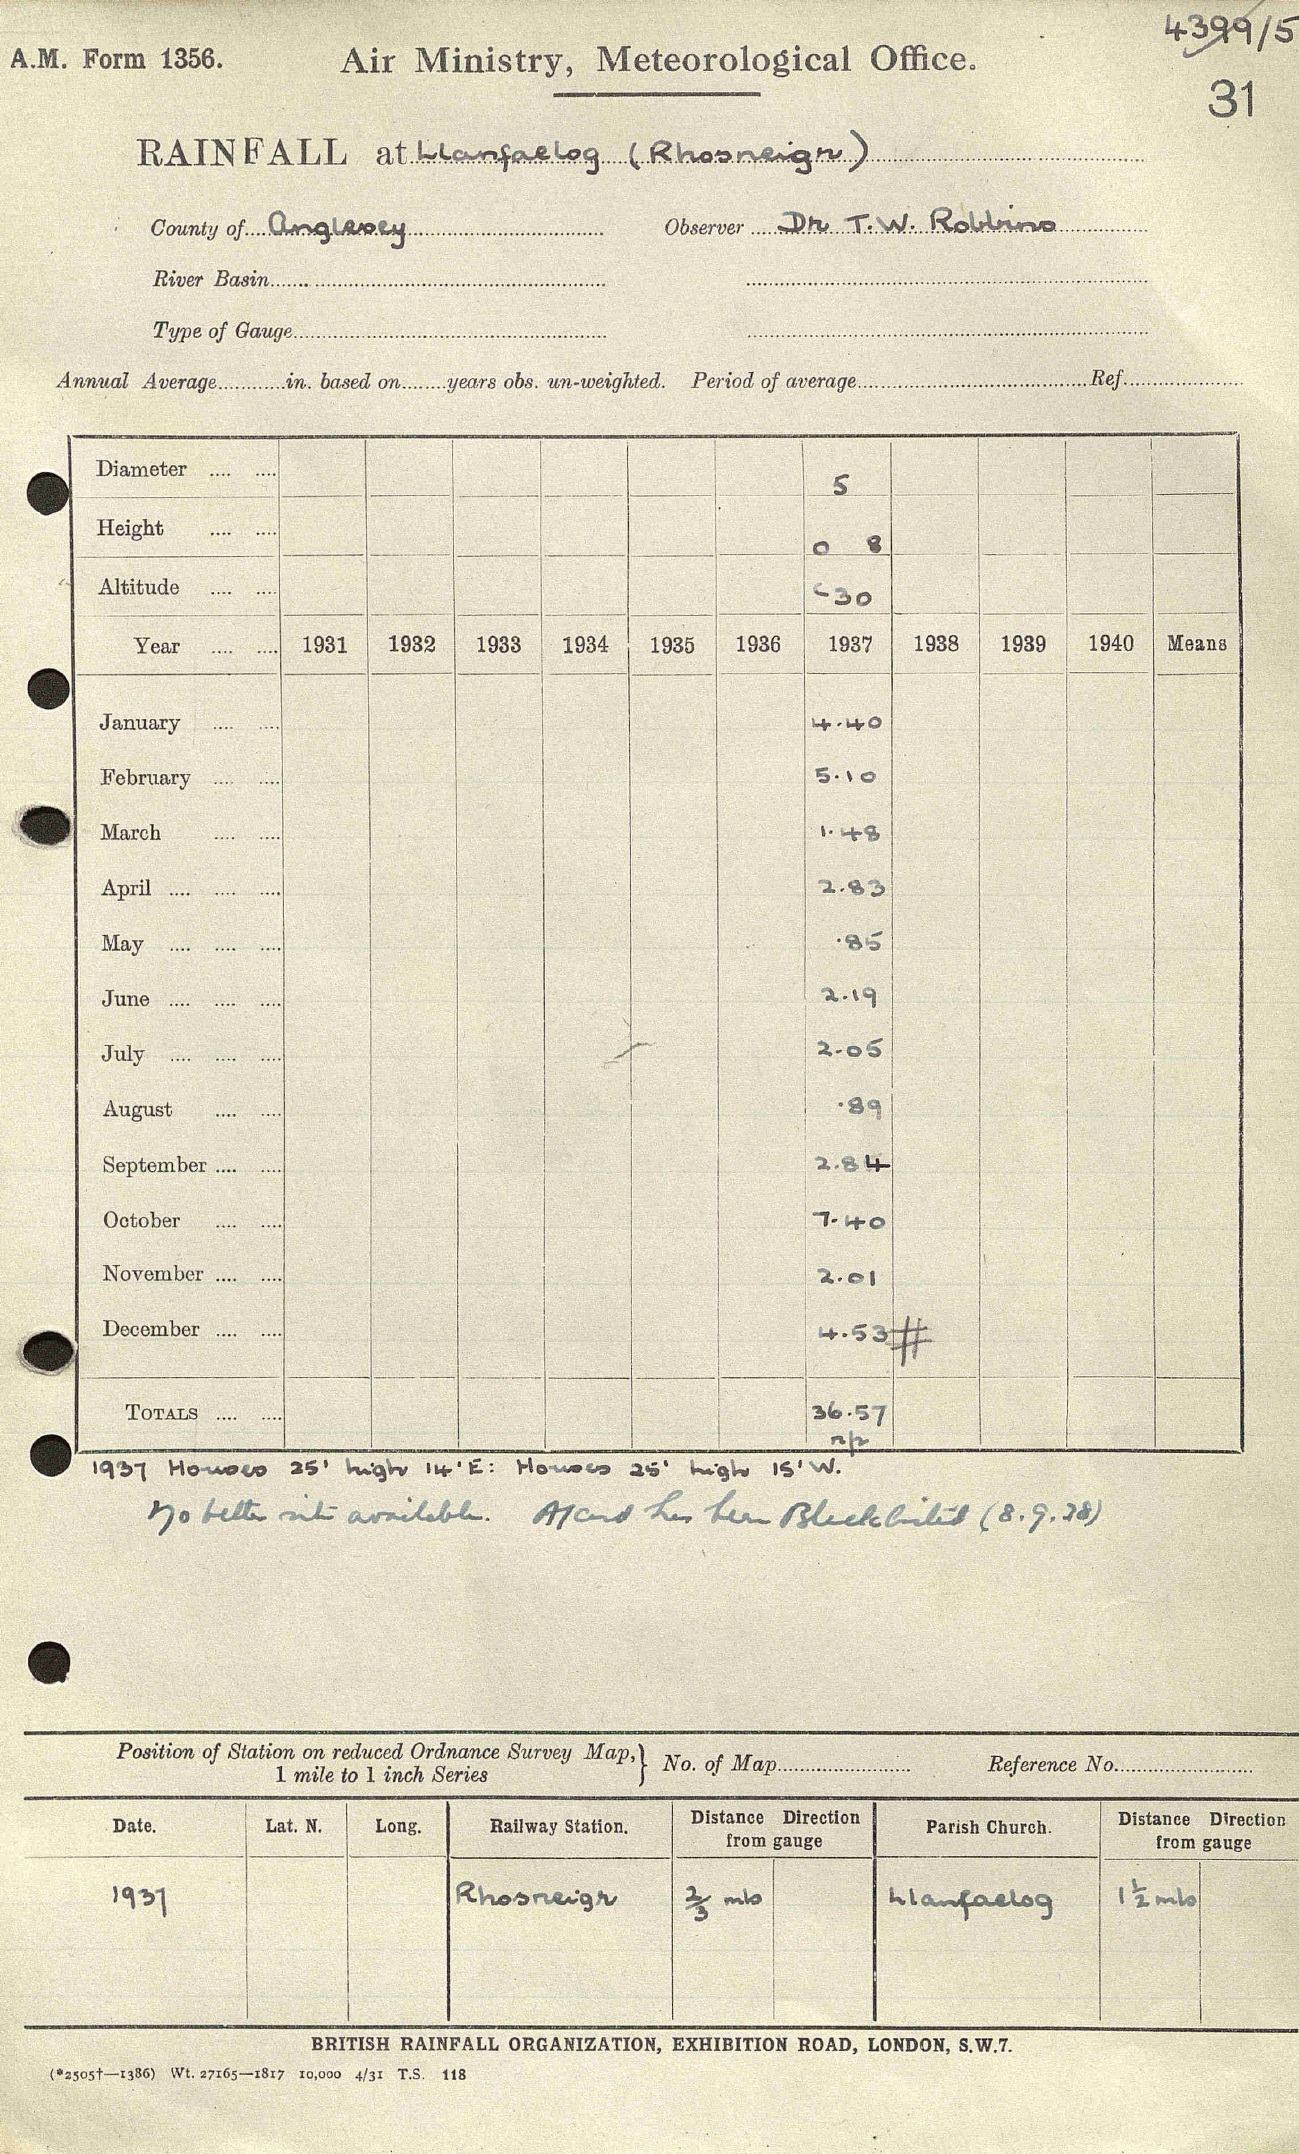 4399/5
A.M. Form 1356. Air Ministry, Meteorological Office.
31
RAINFALL at Llanfaelog (Rhosneigr)
County of Anglesey Observer Dr T. W. Robbins
River Basin
Type of Gauge
Annual Average in. based on years obs. un-weighted. Period of average Ref.
Diameter 5
Height 0 8
Altitude c30
Year 1931 1932 1933 1934 1935 1936 1937 1938 1939 1940 Means
January 4.40
February 5.10
March 1.48
April 2.83
May .85
June 2.19
July 2.05
August .89
September 2.84
October 7.40
November 2.01
December 4.53 #
TOTALS 36.57
n/p
1937 Houses 25' high 14'E: Houses 25' high 15'W.
No better site available. has been Blacklisted (8.9.38)
Position of Station on reduced Ordnance Survey Map, } No. of Map Reference No.
1 mile to 1 inch Series
Date. Lat. N. Long. Railway Station. Distance Direction from gauge Parish Church. Distance Direction from gauge
1937 Rhosneigr 2/3 mls Llanfaelog 1 1/2 mls
BRITISH RAINFALL ORGANIZATION, EXHIBITION ROAD, LONDON, S.W.7.
(*2505†—1386) Wt. 27165—1817 10,000 4/31 T.S. 118